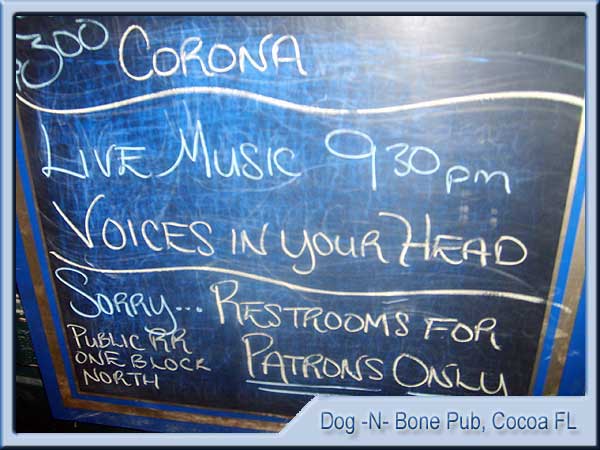 300 CORONA
LIVE MUSIC 930 pm
VOICES IN YOUR HEAD
SORRY... RESTROOMS FOR
PATRONS ONLY
PUBLIC RR
ONE BLOCK
NORTH
Dog -N- Bone Pub, Cocoa FL